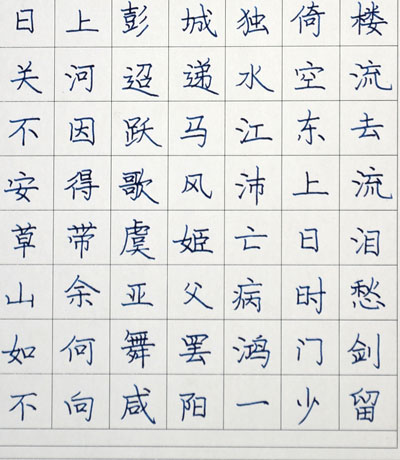 日上彭城独倚楼
关河迢递水空流
不因跃马江东去
安得歌风沛上流
草带虞姬亡日泪
山余亚父病时愁
如何舞罢鸿门剑
不向咸阳一少留